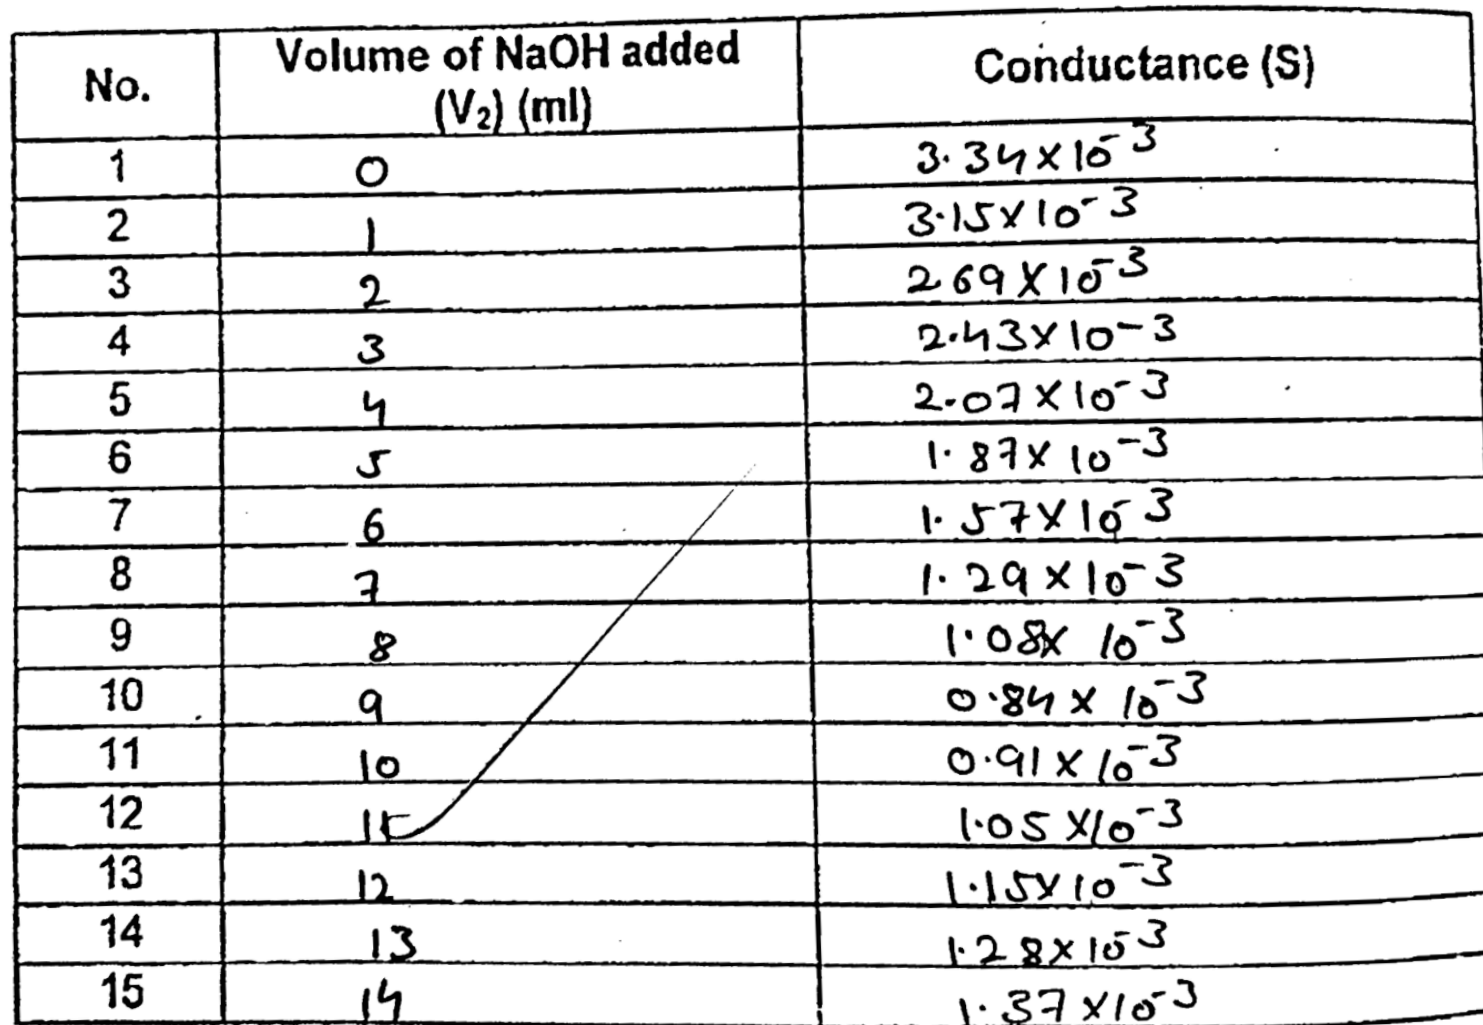 No. Volume of NaOH added (V₂) (ml) Conductance (S)
1 0 3.34×10⁻³
2 1 3.15×10⁻³
3 2 2.69×10⁻³
4 3 2.43×10⁻³
5 4 2.07×10⁻³
6 5 1.87×10⁻³
7 6 1.57×10⁻³
8 7 1.29×10⁻³
9 8 1.08×10⁻³
10 9 0.84×10⁻³
11 10 0.91×10⁻³
12 11 1.05×10⁻³
13 12 1.15×10⁻³
14 13 1.28×10⁻³
15 14 1.37×10⁻³